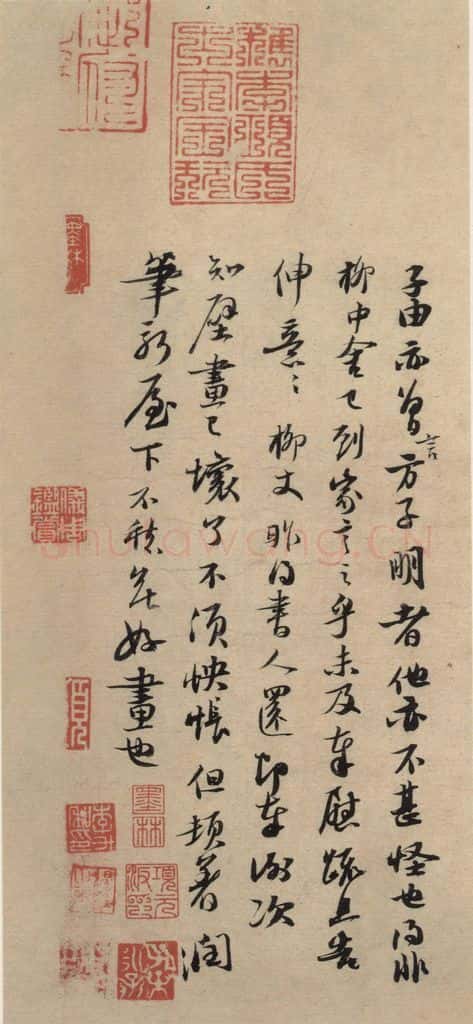 子由亦曾言方子明者他亦不甚怪也得非
柳中舍已到家言之乎未及奉慰疏且告
伸意〻柳丈昨得書人還即奉謝次
知壁畫已壞了不須怏悵但頓著潤
筆新屋下不愁無好畫也
墨林
項元汴印
shufawang.CN